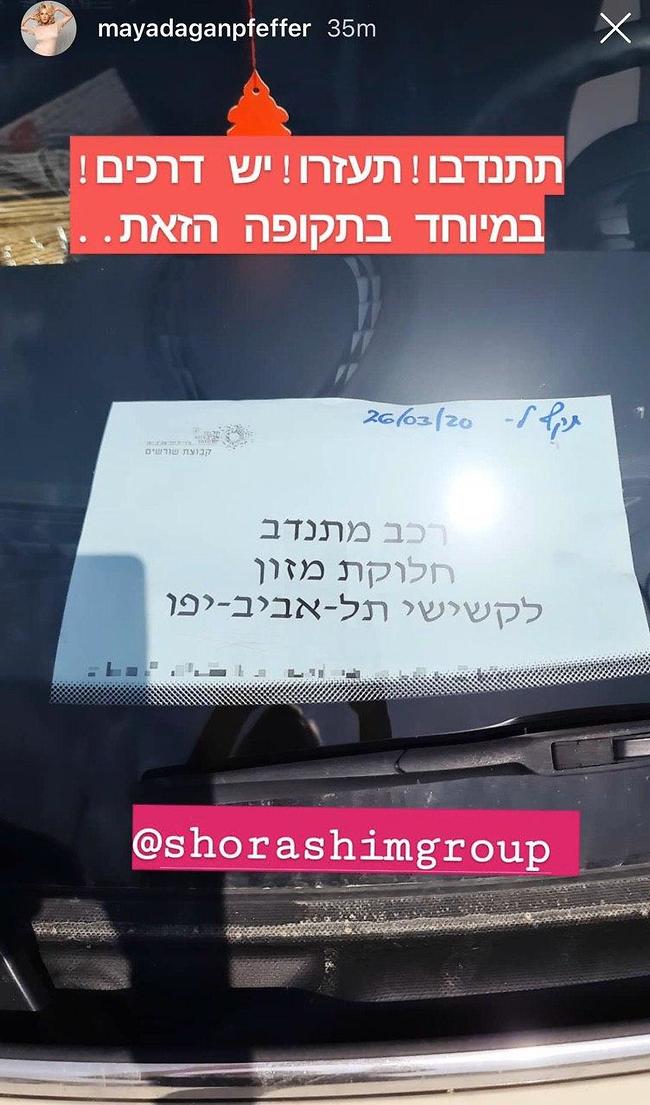 mayadaganpfeffer 35m
תתנדבו! תעזרו! יש דרכים!
במיוחד בתקופה הזאת..
תקף ל- 26/03/20
קבוצת שורשים
רכב מתנדב
חלוקת מזון
לקשישי תל-אביב-יפו
@shorashimgroup